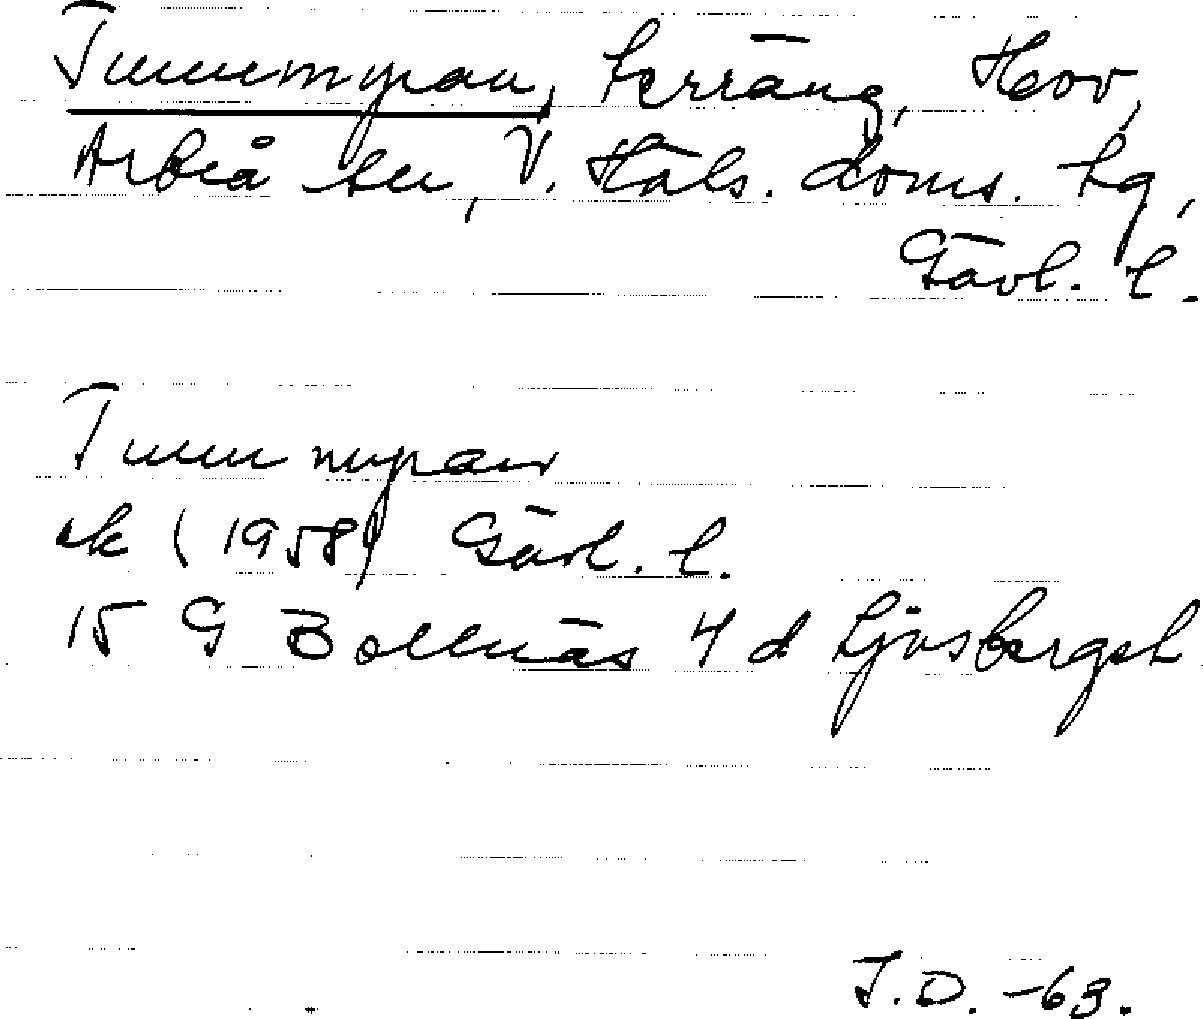 Tunnmyran, terräng, Hov,
Arbrå sn, V. Häls. doms. tg,
Gävl. l.
Tunnmyran
ek (1958) Gävl. l.
15 G Bollnäs 4 d Ljusbergsh
J.D. -63.